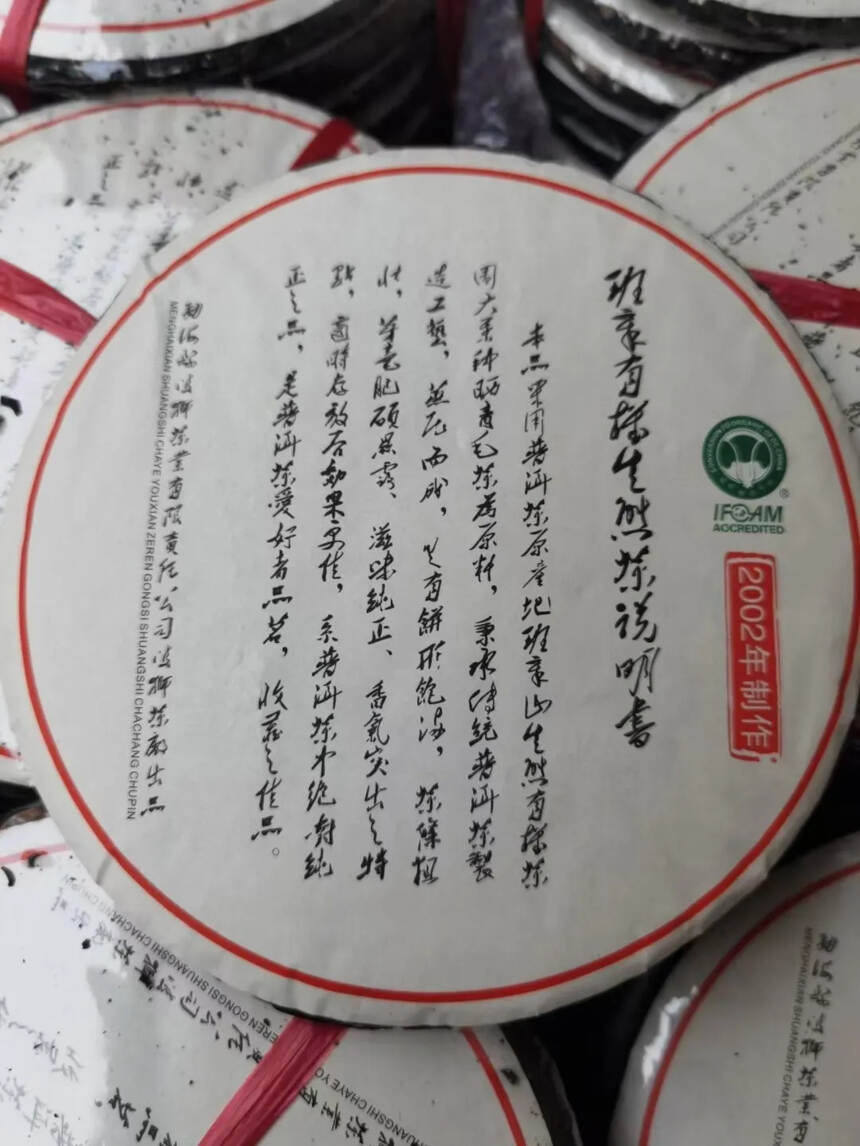 IFOAM
ACCREDITED
2002年制作
班章有機生態茶说明書
本品采用普洱茶原產地班章山生態有機茶
園大葉种晒青毛茶為原料，秉承传统普洱茶製
造工藝，蒸压而成，具有餅形飽滿，茶條粗
壮，芽毫肥硕显露、滋味纯正、香氣突出之特
點，適時存放后効果更佳，系普洱茶中绝對纯
正之品，是普洱茶愛好者品茗，收藏之佳品。
勐海縣双獅茶業有限責任公司双獅茶廠出品
MENGHAIXIAN SHUANGSHI CHAYE YOUXIAN ZEREN GONGSI SHUANGSHI CHACHANG CHUPIN